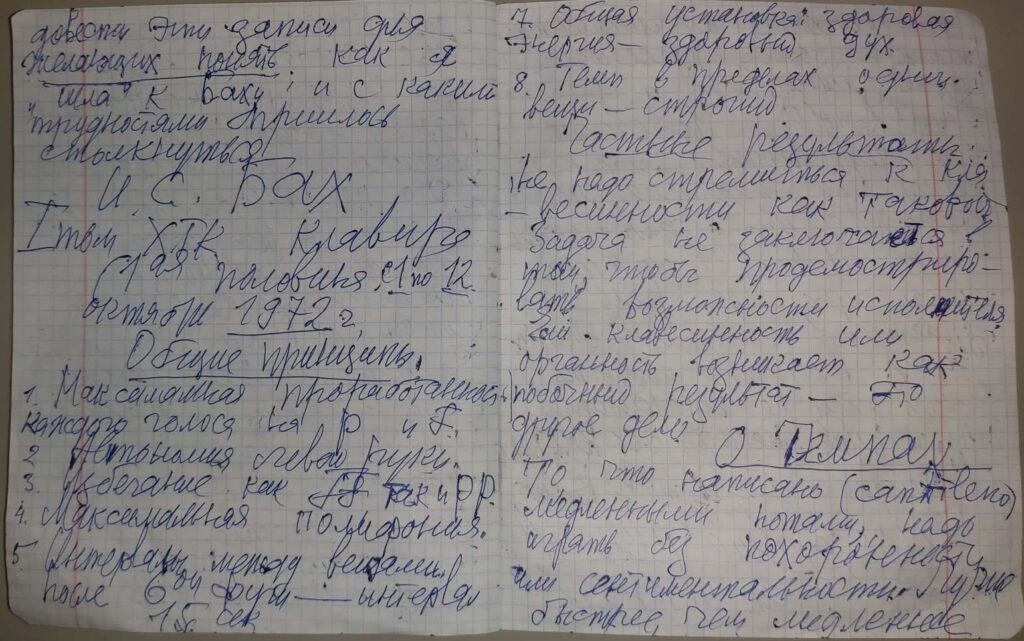 довести эти записи для
желающих понять, как я
"шла" к Баху и с какими
трудностями пришлось
столкнуться
И. С. БАХ
I том ХТК клавира
(1ая половина с 1 по 12
октябри 1972 г.
Общие принципы.
1. Максимальная проработанность
каждого голоса на p и F.
2 Автономия левой руки.
3. Избегание как FF так и pp.
4. Максимальная полифония.
5 Интервалы между вещами
после 6ой фуги — интервал
15 сек
7. Общая установка: здоровая
энергия — здоровый дух.
8. Темп в пределах одной
вещи — строгий
Частные результаты.
не надо стремиться к кла
-весинности как таковой
Задача не заключается в
том, чтобы продемонстриро-
вать возможности исполнителя
клавесинность или
органность возникает как
побочный результат — это
другое дело
О Темпах
То что написано (cantileno)
медленными нотами, надо
играть без похоронности
или сентиментальности. Лучше
быстрее, чем медленнее